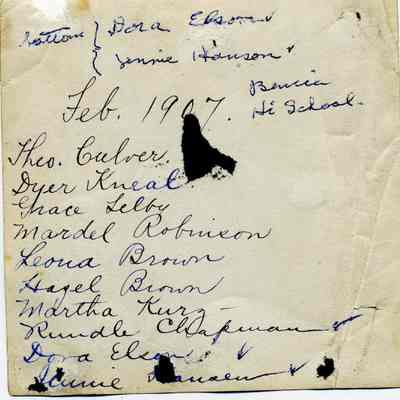 bottom { Dora Elson ✓
Jennie Hanson ✓
Benicia
Hi School.
Feb. 1907.
Theo. Culver.
Dyer Kneal
Grace Selby
Mardel Robinson
Leona Brown
Hazel Brown
Martha Kurz -
Rundle Chapman ✓
Dora Elson ✓
Jennie Hansen ✓